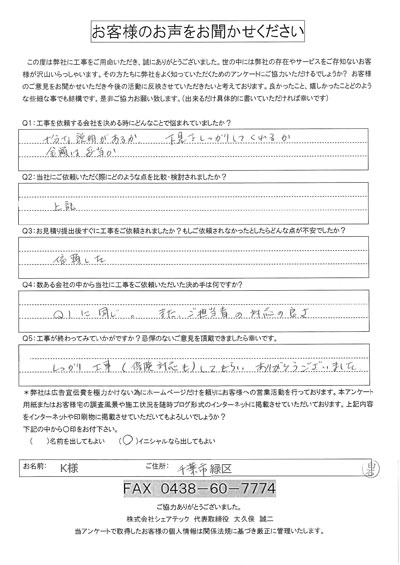 お客様のお声をお聞かせください
この度は弊社に工事をご用命いただき、誠にありがとうございました。世の中には弊社の存在やサービスをご存知ないお客
様が沢山いらっしゃいます。その方たちに弊社をよく知っていただくためのアンケートにご協力いただけるでしょうか？ お客様
のご意見をお聞かせいただき今後の活動に反映させていただきたいと考えております。良かったこと、嬉しかったことどのよう
な些細な事でも結構です。是非ご協力お願い致します。（出来るだけ具体的に書いていただければ幸いです）
Q1：工事を依頼する会社を決める時にどんなことで悩まれていましたか？
十分な説明があるか 下見をしっかりしてくれるか
金額は妥当か
Q2：当社にご依頼いただく際にどのような点を比較・検討されましたか？
上記
Q3：お見積り提出後すぐに工事をご依頼されましたか？もしご依頼されなかったとしたらどんな点が不安でしたか？
依頼した
Q4：数ある会社の中から当社に工事をご依頼いただいた決め手は何ですか？
Q1に同じ。 また、ご担当者の対応の良さ
Q5：工事が終わってみていかがですか？忌憚のないご意見を頂戴できましたら幸いです。
しっかり工事（保険対応も）してもらい、ありがとうございました
＊弊社は広告宣伝費を極力かけない為にホームページだけを頼りにお客様への営業活動を行っております。本アンケート
用紙またはお客様宅の調査風景や施工状況を随時ブログ形式のインターネットに掲載させていただいております。上記内容
をインターネットや印刷物に掲載させていただいてもよろしいでしょうか？
下記の中から〇印をお付下さい。
（ ）名前を出してもよい （〇）イニシャルなら出してもよい
お名前： K様 ご住所： 千葉市緑区
FAX 0438-60-7774
ご協力ありがとうございました。
株式会社シェアテック 代表取締役 大久保 誠二
当アンケートで取得したお客様の個人情報は関係法規に基づき厳正に管理いたします。